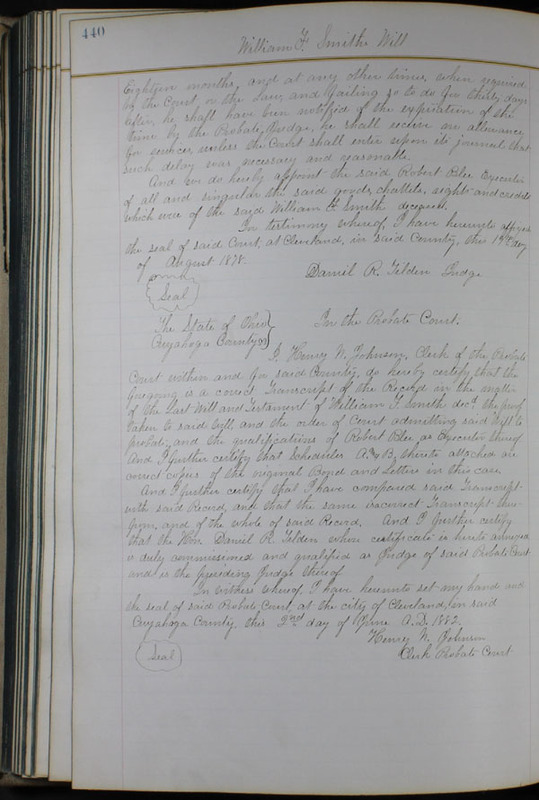 440
William F. Smiths Will
Eighteen months, and at any other time, when required
by the Court, or the Law, and failing so to do for thirty days
after, he shall have been notified of the expiration of the
time by the Probate Judge, he shall receive no allowance
for services, unless the Court shall enter upon its journal that
such delay was necessary and reasonable.
And we do hereby appoint the said Robert Blee Executor
of all and singular the said goods, chattels, rights and credits
which were of the said William F. Smith deceased.
In testimony whereof, I have hereunto affixed
the seal of said Court, at Cleveland, in said County, this 19th day
of August 1878.
Seal
Daniel R. Tilden Judge
The State of Ohio
Cuyahoga County ss
In the Probate Court.
I, Henry W. Johnson, Clerk of the Probate
Court within and for said County, do hereby certify that the
foregoing is a correct Transcript of the Record in the matter
of the Last Will and Testament of William F. Smith decd. the proof
taken to said Will, and the order of Court admitting said Will to
probate, and the qualifications of Robert Blee, as Executor thereof
And I further certify that Schedules A. & B, thereto attached are
correct copies of the original Bond and Letters in this case.
And I further certify that I have compared said Transcript
with said Record, and that the same is a correct Transcript there-
from, and of the whole of said Record, And I further certify
that the Hon. Daniel R. Tilden whose certificate is hereto annexed
is duly commissioned and qualified as Judge of said Probate Court
and is the presiding Judge thereof
In witness whereof, I have hereunto set my hand and
the seal of said Probate Court, at the city of Cleveland, in said
Cuyahoga County, this day of June A.D. 1882.
Henry W. Johnson
Seal
Clerk Probate Court